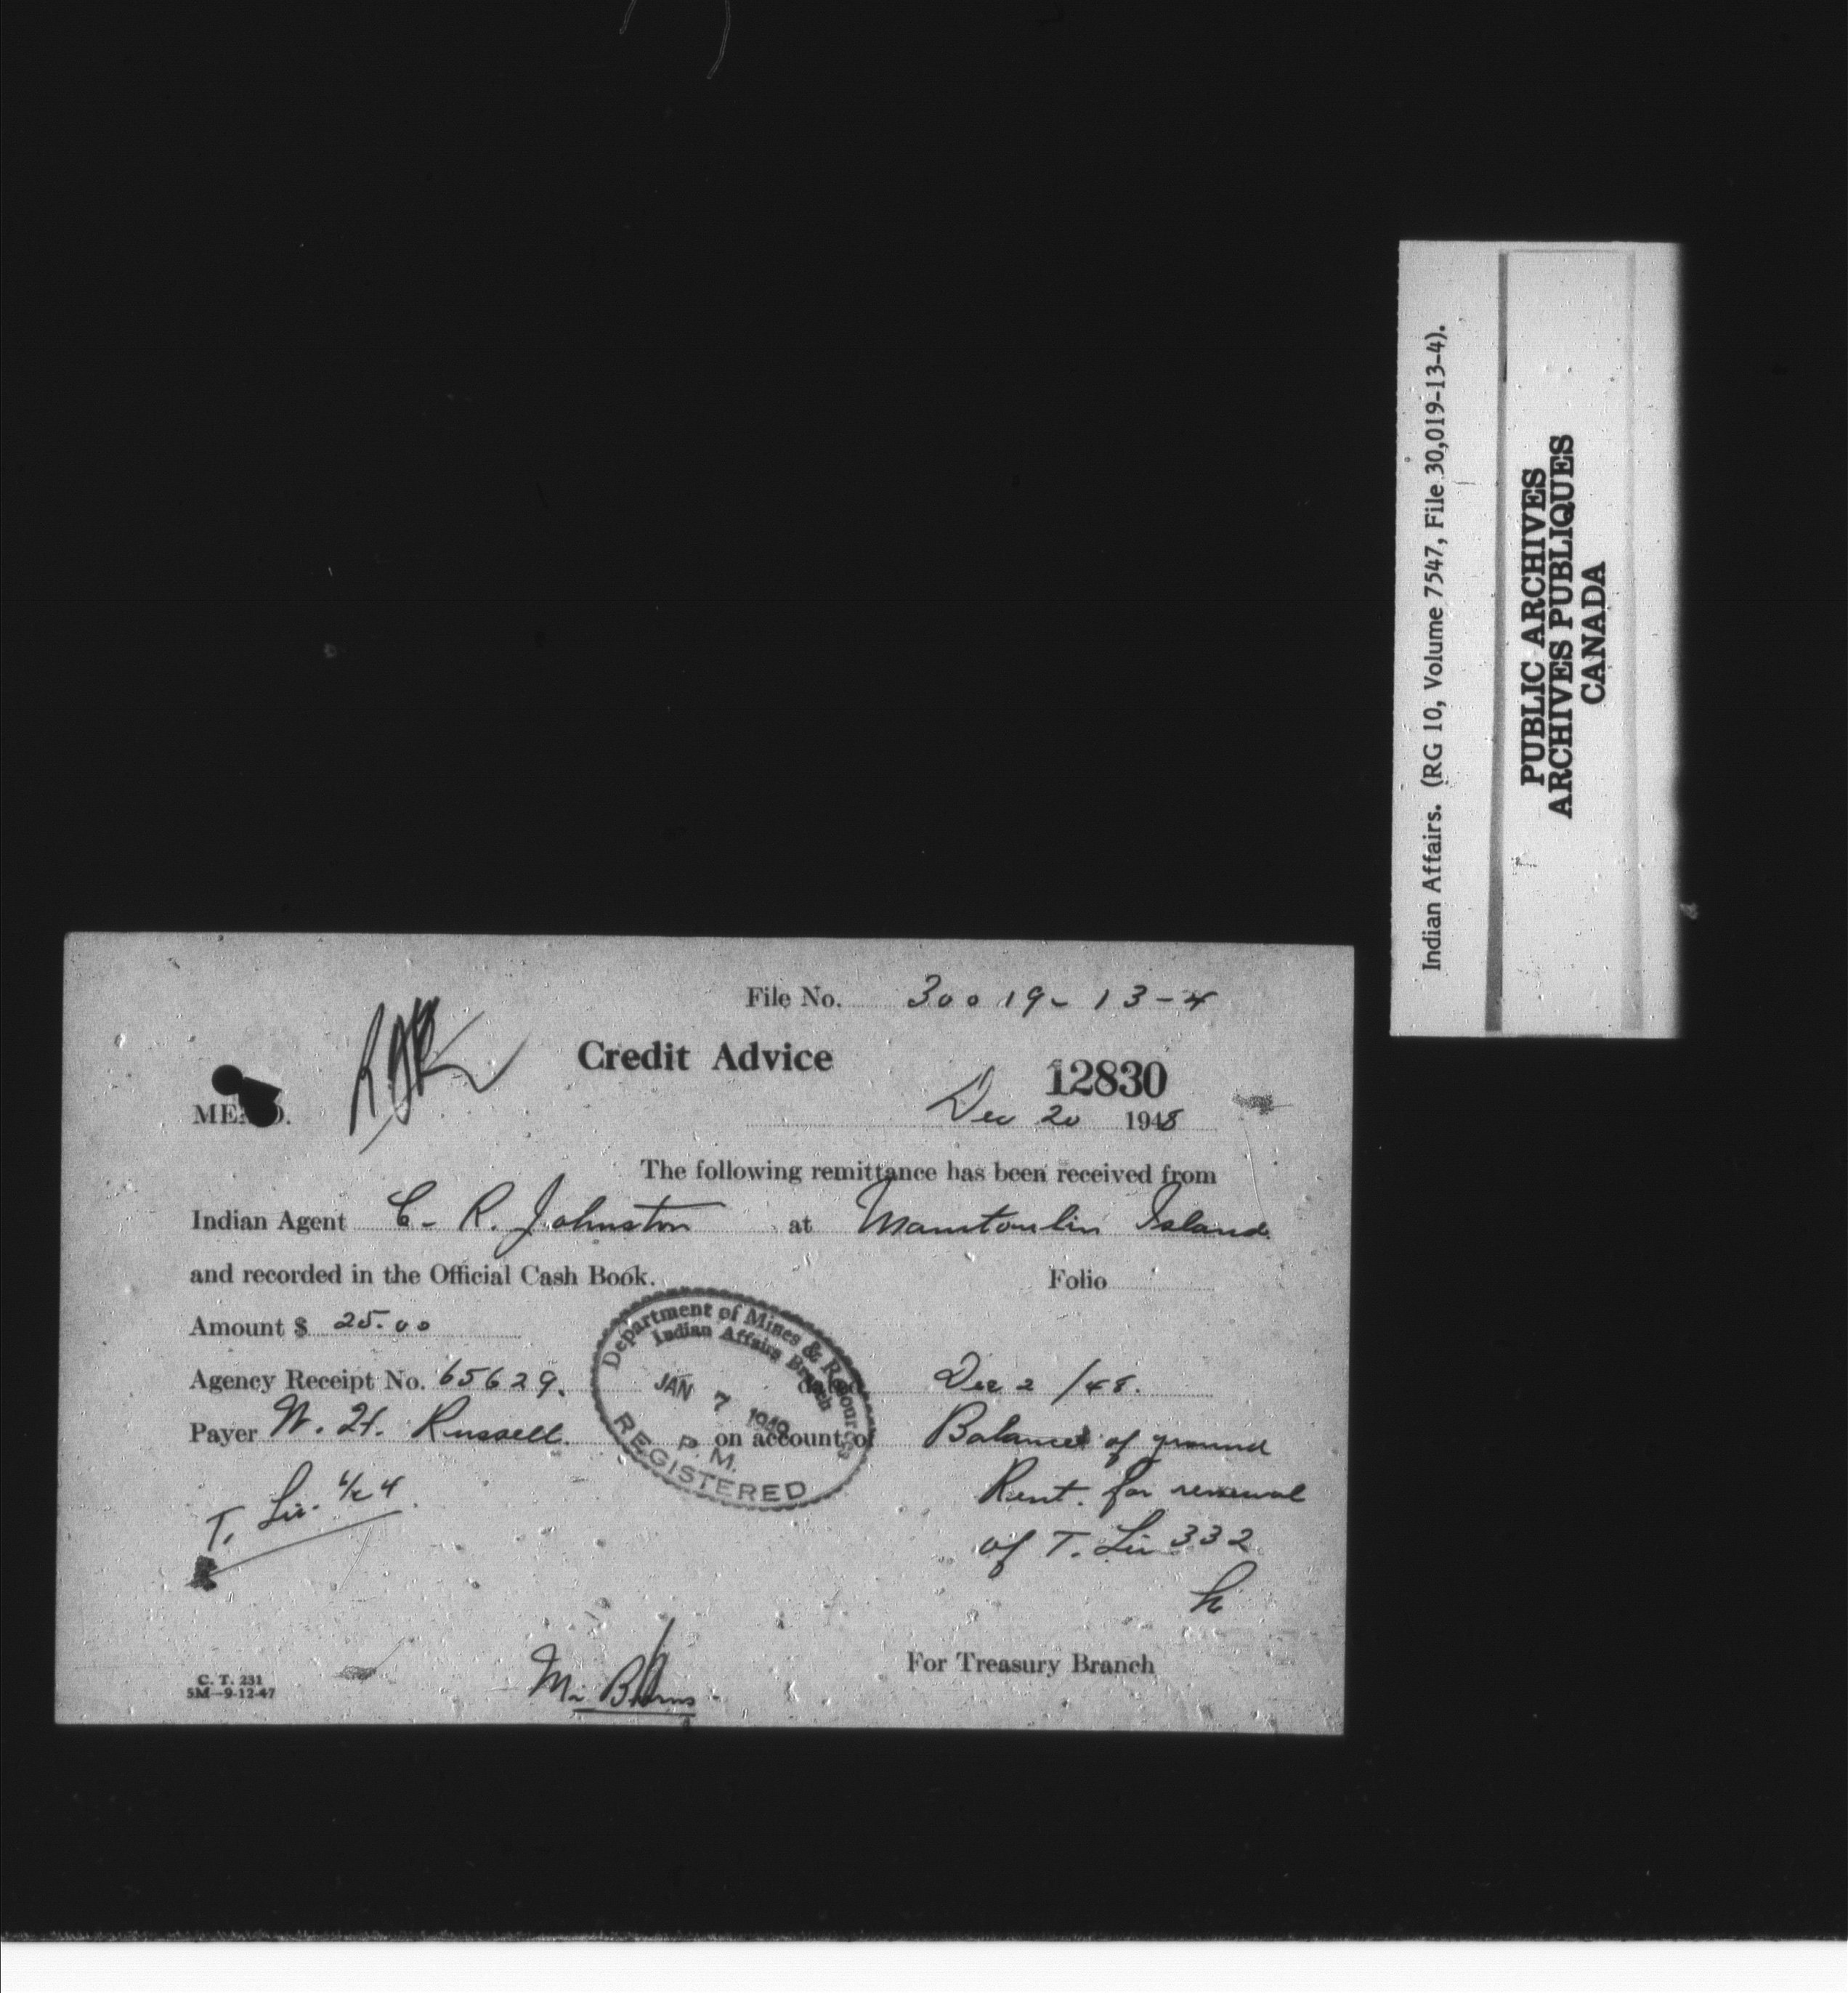 File No. 30019-13-4
Credit Advice
12830
MEMO.
Dec 20 1948
The following remittance has been received from
Indian Agent C. R. Johnston at Manitoulin Island
and recorded in the Official Cash Book. Folio
Amount $ 25.00
Agency Receipt No. 65629. Dec 2/48.
Payer W. H. Russell. on account of Balance of ground
Rent. for renewal
of T. Lic 332
T. Lic.
Department of Mines & Resources
Indian Affairs Branch
JAN 7 1949
P. M.
REGISTERED
For Treasury Branch
C. T. 231
5M—9-12-47
Indian Affairs. (RG 10, Volume 7547, File 30,019-13-4).
PUBLIC ARCHIVES
ARCHIVES PUBLIQUES
CANADA